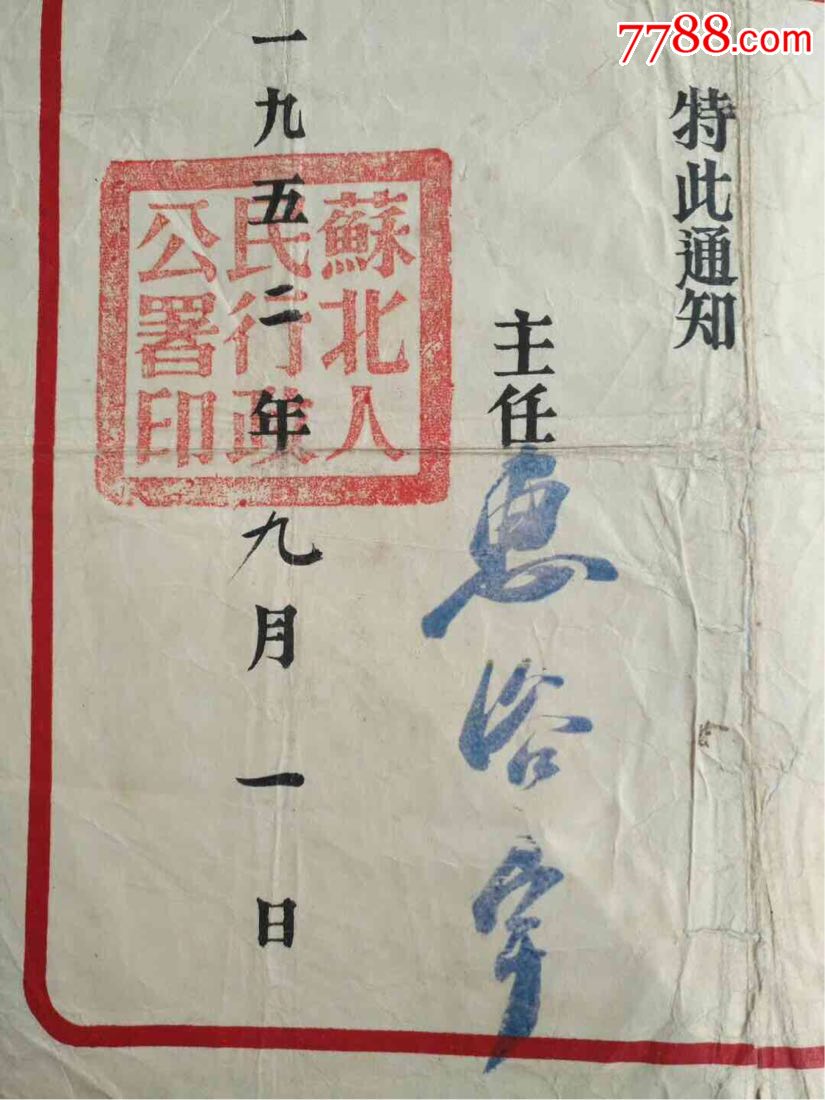 7788.com
特此通知
主任惠浴宇
一九五二年九月一日
蘇北人
民行政
公署印